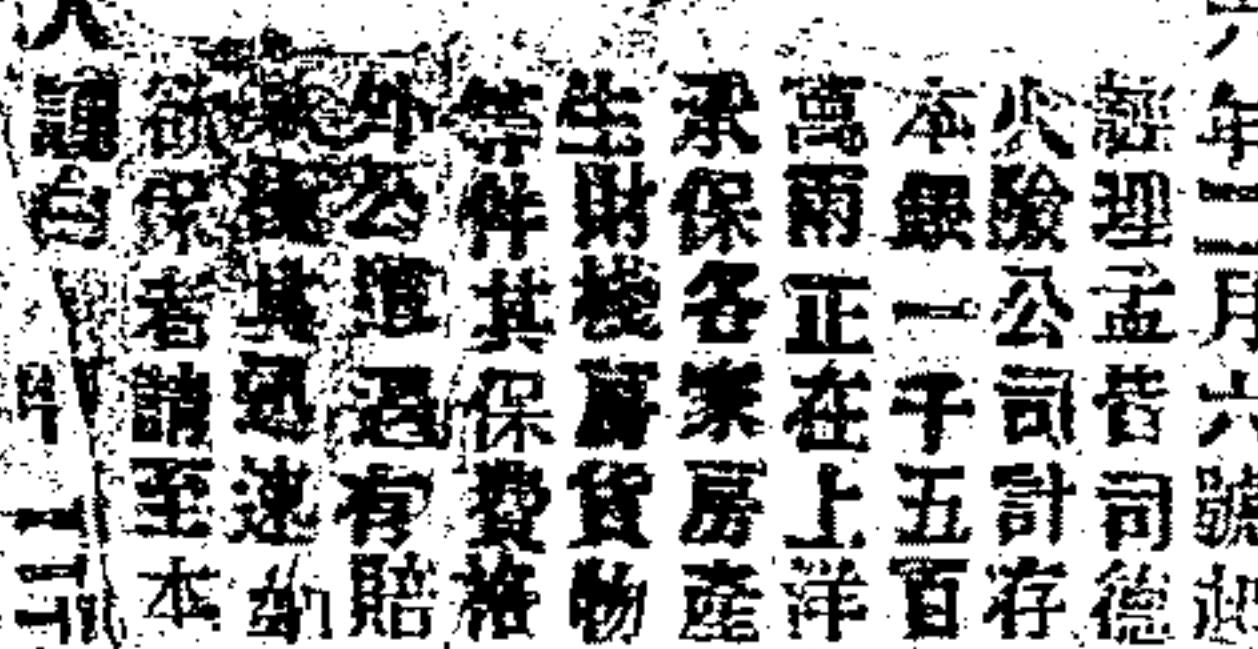 六年二月六號起
經理孟昔司德
火險公司計存
本銀一千五百
萬兩正在上洋
承保各家房產
生財棧房貨物
等件其保費格
外公道遇有賠
其迅速如
欲保者請至本
謹白